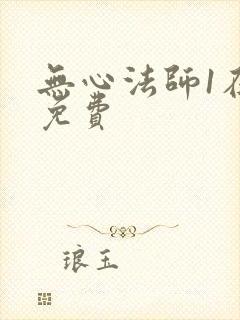 無心法師1在
免費
琅玉